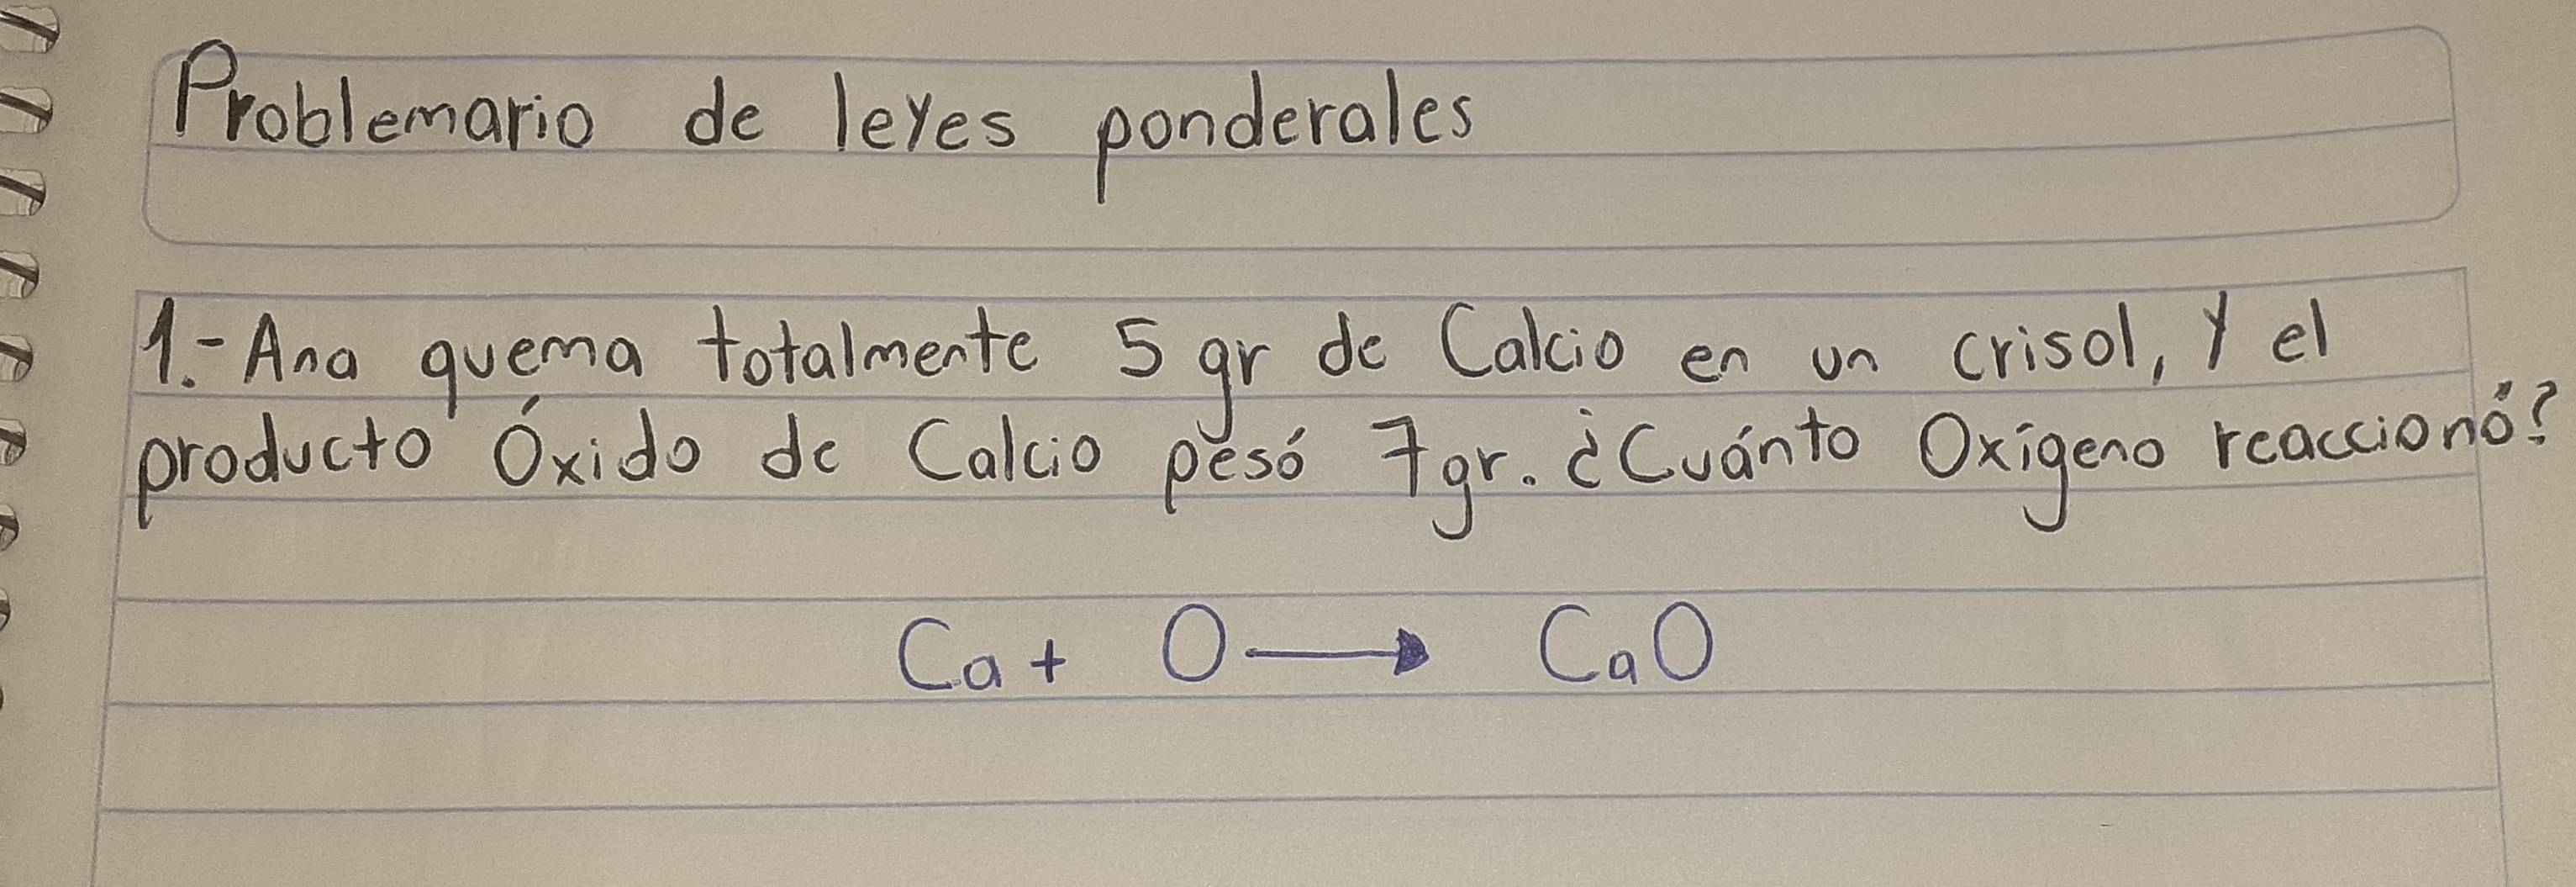 Problemario de leyes ponderales
1.- Ana quema totalmente 5 gr de Calcio en un crisol, y el
producto Óxido de Calcio pesó 7gr. ¿Cuánto Oxígeno reaccionó?
Ca + O → CaO